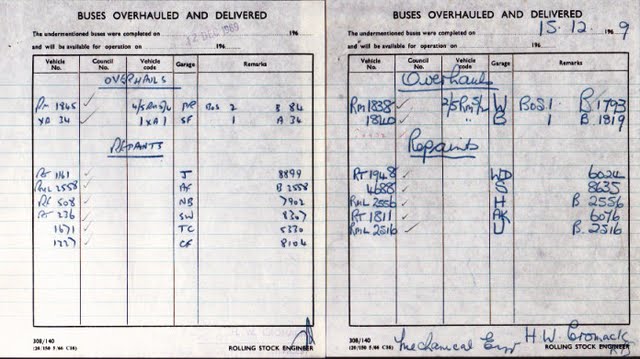 BUSES OVERHAULED AND DELIVERED
The undermentioned buses were completed on 12 DEC 1969 196
and will be available for operation on 196
Vehicle No. Council No. Vehicle code Garage Remarks
OVERHAULS
RM 1865 ✓ 4/5RM5/4 MP BOS 2 B 84
XA 34 ✓ 1XA1 SF 1 A 34
REPAINTS
RT 1161 ✓ J 8899
RML 2558 ✓ AF B 2558
RF 508 ✓ NB 7902
RT 236 ✓ SW 8367
1671 ✓ TC 5330
1327 ✓ CF 8104
308/140
ROLLING STOCK ENGINEER
BUSES OVERHAULED AND DELIVERED
The undermentioned buses were completed on 15.12. 196 9
and will be available for operation on 196
Vehicle No. Council No. Vehicle code Garage Remarks
Overhauls
RM 1838 ✓ 2/5RM5/4 W BOS 1 B 1793
1840 ✓ " B 1 B 1819
Repaints
RT 1948 ✓ WD 6024
4688 ✓ S 8635
RML 2556 ✓ H B 2556
RT 1811 ✓ AK 6076
RML 2516 ✓ U B 2516
Mechanical Engr H.W. Cromack
308/140
ROLLING STOCK ENGINEER